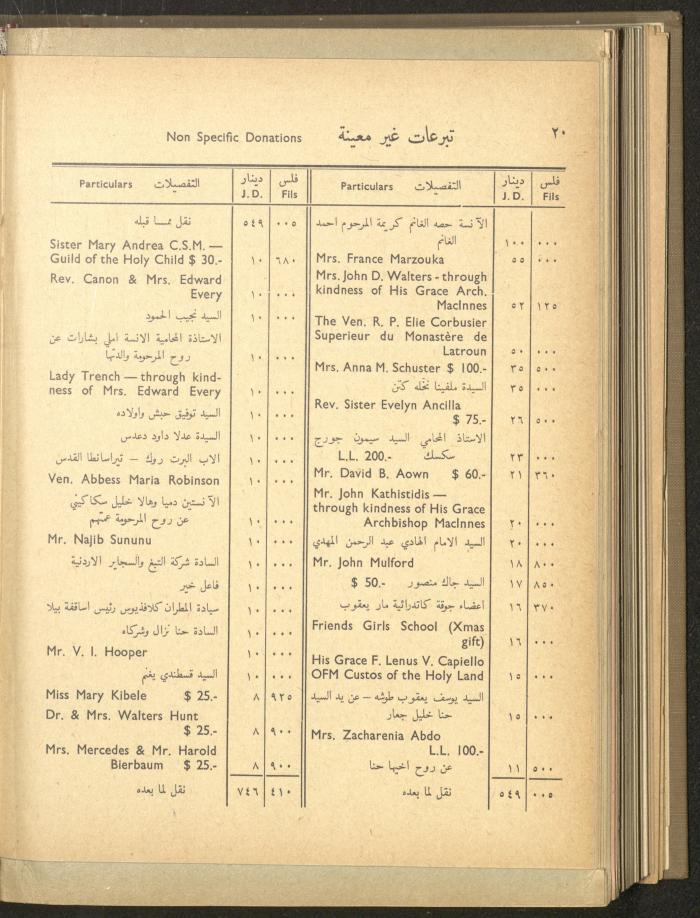 Non Specific Donations تبرعات غير معينة ٢٠
Particulars التفصيلات دينار J.D. فلس Fils
الآنسة حصه الغانم كريمة المرحوم احمد
الغانم ١٠٠ ٠٠٠
Mrs. France Marzouka ٥٥ ٠٠٠
Mrs. John D. Walters - through
kindness of His Grace Arch.
MacInnes ٥٢ ١٢٥
The Ven. R. P. Elie Corbusier
Superieur du Monastère de
Latroun ٥٠ ٠٠٠
Mrs. Anna M. Schuster $ 100.- ٣٥ ٥٠٠
السيدة ملفينا نخله كتن ٣٥ ٠٠٠
Rev. Sister Evelyn Ancilla
$ 75.- ٢٦ ٥٠٠
الاستاذ المحامي السيد سيمون جورج
سكسك L.L. 200.- ٢٣ ٠٠٠
Mr. David B. Aown $ 60.- ٢١ ٣٦٠
Mr. John Kathistidis —
through kindness of His Grace
Archbishop MacInnes ٢٠ ٠٠٠
السيد الامام الهادي عبد الرحمن المهدي ٢٠ ٠٠٠
Mr. John Mulford ١٨ ٨٠٠
السيد جاك منصور $ 50.- ١٧ ٨٥٠
اعضاء جوقة كاتدرائية مار يعقوب ١٦ ٣٧٠
Friends Girls School (Xmas
gift) ١٦ ٠٠٠
His Grace F. Lenus V. Capiello
OFM Custos of the Holy Land ١٥ ٠٠٠
السيد يوسف يعقوب طوشه – عن يد السيد
حنا خليل جعار ١٥ ٠٠٠
Mrs. Zacharenia Abdo
L.L. 100.-
عن روح اخيها حنا ١١ ٥٠٠
نقل لما بعده ٥٤٩ ٠٠٥
Particulars التفصيلات دينار J.D. فلس Fils
نقل ممـا قبله ٥٤٩ ٠٠٥
Sister Mary Andrea C.S.M. —
Guild of the Holy Child $ 30.- ١٠ ٦٨٠
Rev. Canon & Mrs. Edward
Every ١٠ ٠٠٠
السيد نجيب الحمود ١٠ ٠٠٠
الاستاذة المحامية الانسة املي بشارات عن
روح المرحومة والدتها ١٠ ٠٠٠
Lady Trench — through kind-
ness of Mrs. Edward Every ١٠ ٠٠٠
السيد توفيق حبش واولاده ١٠ ٠٠٠
السيدة عدلا داود دعدس ١٠ ٠٠٠
الاب البرت روك – تيراسانطا القدس ١٠ ٠٠٠
Ven. Abbess Maria Robinson ١٠ ٠٠٠
الآنستين دميا وهالا خليل سكاكيني
عن روح المرحومة عمتهم ١٠ ٠٠٠
Mr. Najib Sununu ١٠ ٠٠٠
السادة شركة التبغ والسجاير الاردنية ١٠ ٠٠٠
فاعل خير ١٠ ٠٠٠
سيادة المطران كلافديوس رئيس اساقفة بيلا ١٠ ٠٠٠
السادة حنا نزال وشركاه ١٠ ٠٠٠
Mr. V. I. Hooper ١٠ ٠٠٠
السيد قسطندي يغنم ١٠ ٠٠٠
Miss Mary Kibele $ 25.- ٨ ٩٢٥
Dr. & Mrs. Walters Hunt
$ 25.- ٨ ٩٠٠
Mrs. Mercedes & Mr. Harold
Bierbaum $ 25.- ٨ ٩٠٠
نقل لما بعده ٧٤٦ ٤١٠